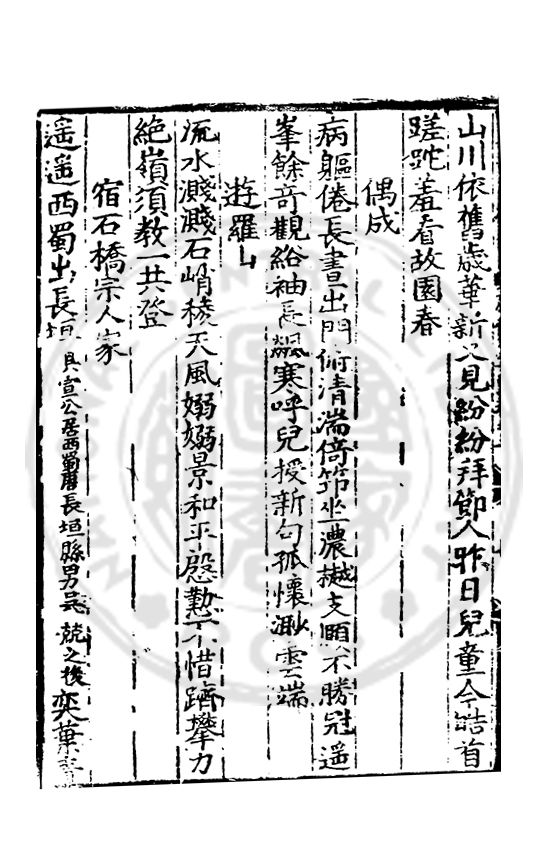 山川依舊歲華新又見紛紛拜節人昨日兒童今皓首
蹉跎羞看故園春
偶成
病軀倦長晝出門俯清湍倚筇坐濃樾支願不勝冠遥
峯餘竒觀絺袖長飆寒呼兒授新句孤懷渺雲端
遊羅山
流水濺濺石峭稜天風嫋嫋景和平慇懃不惜躋攀力
絶嶺須教一共登
宿石橋宗人家
遥遥西蜀出長垣 具宣公居西蜀唐長垣縣男吴兢之後 奕葉